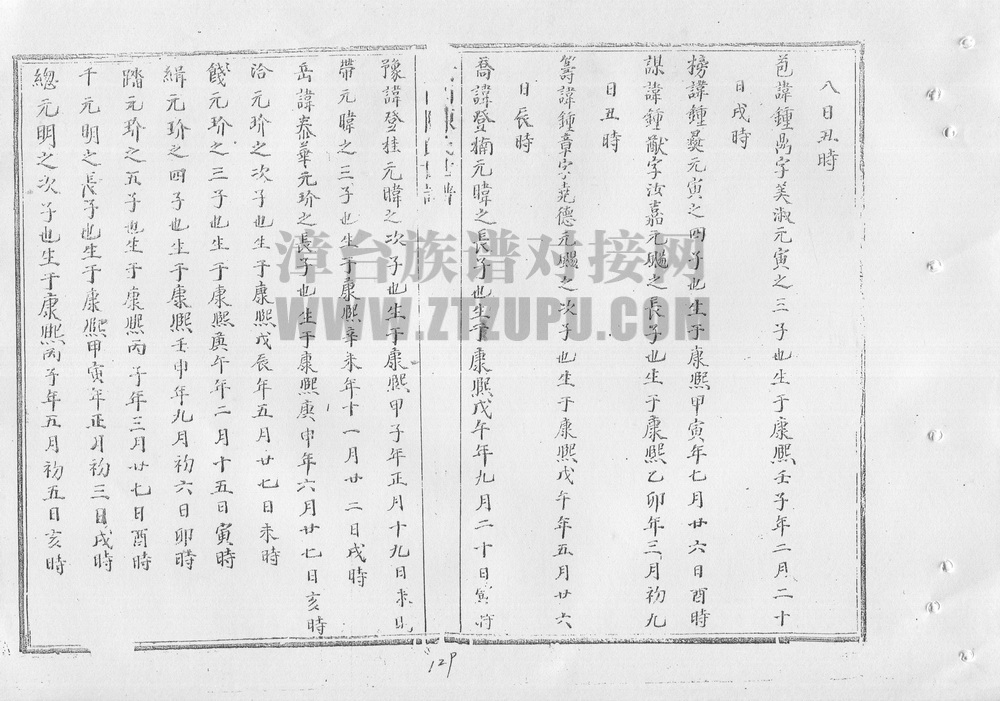 八日丑時
苞諱鍾禼字美淑元寅之三子也生于康熙壬子年二月二十
日戌時
榜諱鍾彝元寅之四子也生于康熙甲寅年七月廿六日酉時
謀諱鍾猷字汝嘉元賜之長子也生于康熙乙卯年三月初九
日丑時
籌諱鍾章字堯德元賜之次子也生于康熙戊午年五月廿六
日辰時
喬諱登楠元暐之長子也生于康熙戊午年九月二十日寅時
豫諱登桂元暐之次子也生于康熙甲子年正月十九日未時
帶元暐之三子也生于康熙辛未年十一月廿二日戌時
岳諱泰華元玠之長子也生于康熙庚申年六月廿七日亥時
洽元玠之次子也生于康熙戊辰年五月廿七日未時
餞元玠之三子也生于康熙庚午年二月十五日寅時
緝元玠之四子也生于康熙壬申年九月初六日卯時
踏元玠之五子也生于康熙丙子年三月廿七日酉時
千元明之長子也生于康熙甲寅年正月初三日戌時
總元明之次子也生于康熙丙子年五月初五日亥時
漳台族谱对接网
WWW.ZTZUPU.COM
129